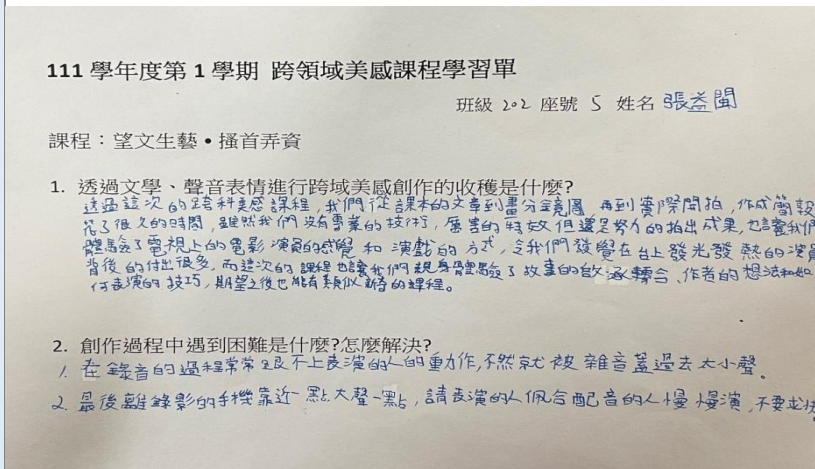 111 學年度第 1 學期 跨領域美感課程學習單
班級 202 座號 5 姓名 張益閩
課程：望文生藝•搔首弄資
1. 透過文學、聲音表情進行跨域美感創作的收穫是什麼?
透過這次的跨科美感課程，我們從課本的文章到畫分鏡圖，再到實際開拍，作成簡報
花了很久的時間，雖然我們沒有專業的技術，厲害的特效但還是努力的拍出成果，也讓我們
體驗了電視上的電影演員的感覺和演戲的方式，令我們發覺在台上發光發熱的演員
背後的付出很多，而這次的課程也讓我們親身體驗了故事的啟承轉合、作者的想法和如
何表演的技巧，期望之後也能有類似的課程。
2. 創作過程中遇到困難是什麼?怎麼解決?
1. 在錄音的過程常常跟不上表演的人的動作，不然就被雜音蓋過去太小聲。
2. 最後離錄影的手機靠近一點大聲一點，請表演的人佩合配音的人慢慢演，不要求快